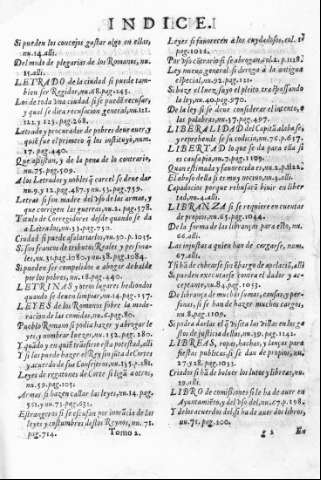 INDICE.
Si pueden los concejos gastar algo en ellas,
nu.14.alli.
Del modo de plegarias de los Romanos, nu.
15.alli.
LETRADO de la ciudad si puede tam-
bien ser Regidor, nu.68.pag.143.
Los de toda vna ciudad si se puede recusar, y
y qual se dira recusacion general, nu.121.
122.y 123.pag.268.
Letrado y procurador de pobres deue auer, y
qual fue el primero q los instituyò, num.
17.pag.440.
Que assistan, y de la pena de lo contrario,
nu.75.pag.509.
A los Letrados y nobles q carcel se deue dar
nu.9.y 12.pag.487.y nu.53.pag.759.
Letras si son madre del vso de las armas, y
que corrigen las guerras, nu.2.pag.578.
Titulo de Corregidores desde quando se da
a Letrados, nu.33.pag.750.
Ciudad si puede assalariarlos, nu.30.p.1035.
Si son francos de tributos Reales y persona-
les, nu.31.pag.1080. y nu.38.pag.1084.
Si pueden ser compelidos a abogar debalde
por los pobres, nu.18.pag.440.
LETRINAS y otros lugares hediondos
quando se deuen limpiar, nu.14.pag.137.
LEYES de los Romanos sobre la mode-
racion de las comidas, nu.6.pag.80.
Pueblo Romano si podia hazer y abrogar le
yes, y nombrar Iuezes, nu.132.pag.280.
Y quãdo y en quiẽ trasfirio esta potestad, alli
Y si las puede hazer el Rey sin jũta de Cortes
y acuerdo de sus Consejeros, nu.135.p.281.
Leyes de regatones de Corte si ligã a otros,
nu.59.pag.103.
Armas si hazen callar las leyes, nu.14.pag.
592. y nu.75.pag.632.
Estrangeros si se escusan por ignorãcia de las
leyes y costumbres destos Reynos, nu.71.
pag.714.
Leyes si fauorecen a los cuydadosos, col.1ª
pag.1022.
Por vso cõtrario si se abrogan, col.2.p.1128.
Ley nueua, general si deroga à la antigua
especial, nu.92.pag.1181.
Si haze el Iuez suyo el pleito traspassando
la ley, nu.40.pag.970.
De la ley si se deue considerar el intento, o
las palabras, nu.37.pag.497.
LIBERALIDAD del Capitã alaba se,
y reprehende se su codicia, nu.76.p.637.
LIBERTAD lo que se da para ella si
es causa pia, nu.77.pag.1109.
Quan estimada y fauorecida es, nu.2.p.1122.
El abuso della si es muy nociuo, nu.4.alli.
Capadoces porque rehusarõ biuir en liber-
tad, nu.4.alli.
LIBRANZA si se requiere en cuentas
de propios, nu.65.pag.1044.
De la forma de las librançasa para ello, nu.
66.alli.
Las injustas a quien han de cargarse, num.
67.alli.
Y si hã de cobrarse sin ẽbargo de apelaciõ, alli
Si pueden executarse contra el dador y ac-
ceptante, nu.84.pag.1053.
De librança de muchas sumas, causas, y per-
sonas, si se han de hazer muchos cargos,
nu.8.pag.1109.
Si podra darlas el q̃ visita las villas en los ga
stos de justicia dellas, nu.39.pag.1142.
LIBREAS, ropas, hachas, y danças para
fiestas publicas si se dan de propios, nu.
27.y 28.pag.1033.
Criados si hã de boluer las lutos y libreas, nu.
29.alli.
LIBRO de comissiones si le ha de auer en
Ayuntamiẽto, y del vso del, nu.67.p.198.
Y de los acuerdos del si ha de auer dos libros,
nu.71.pag.200.
Tomo 2. g 2 En